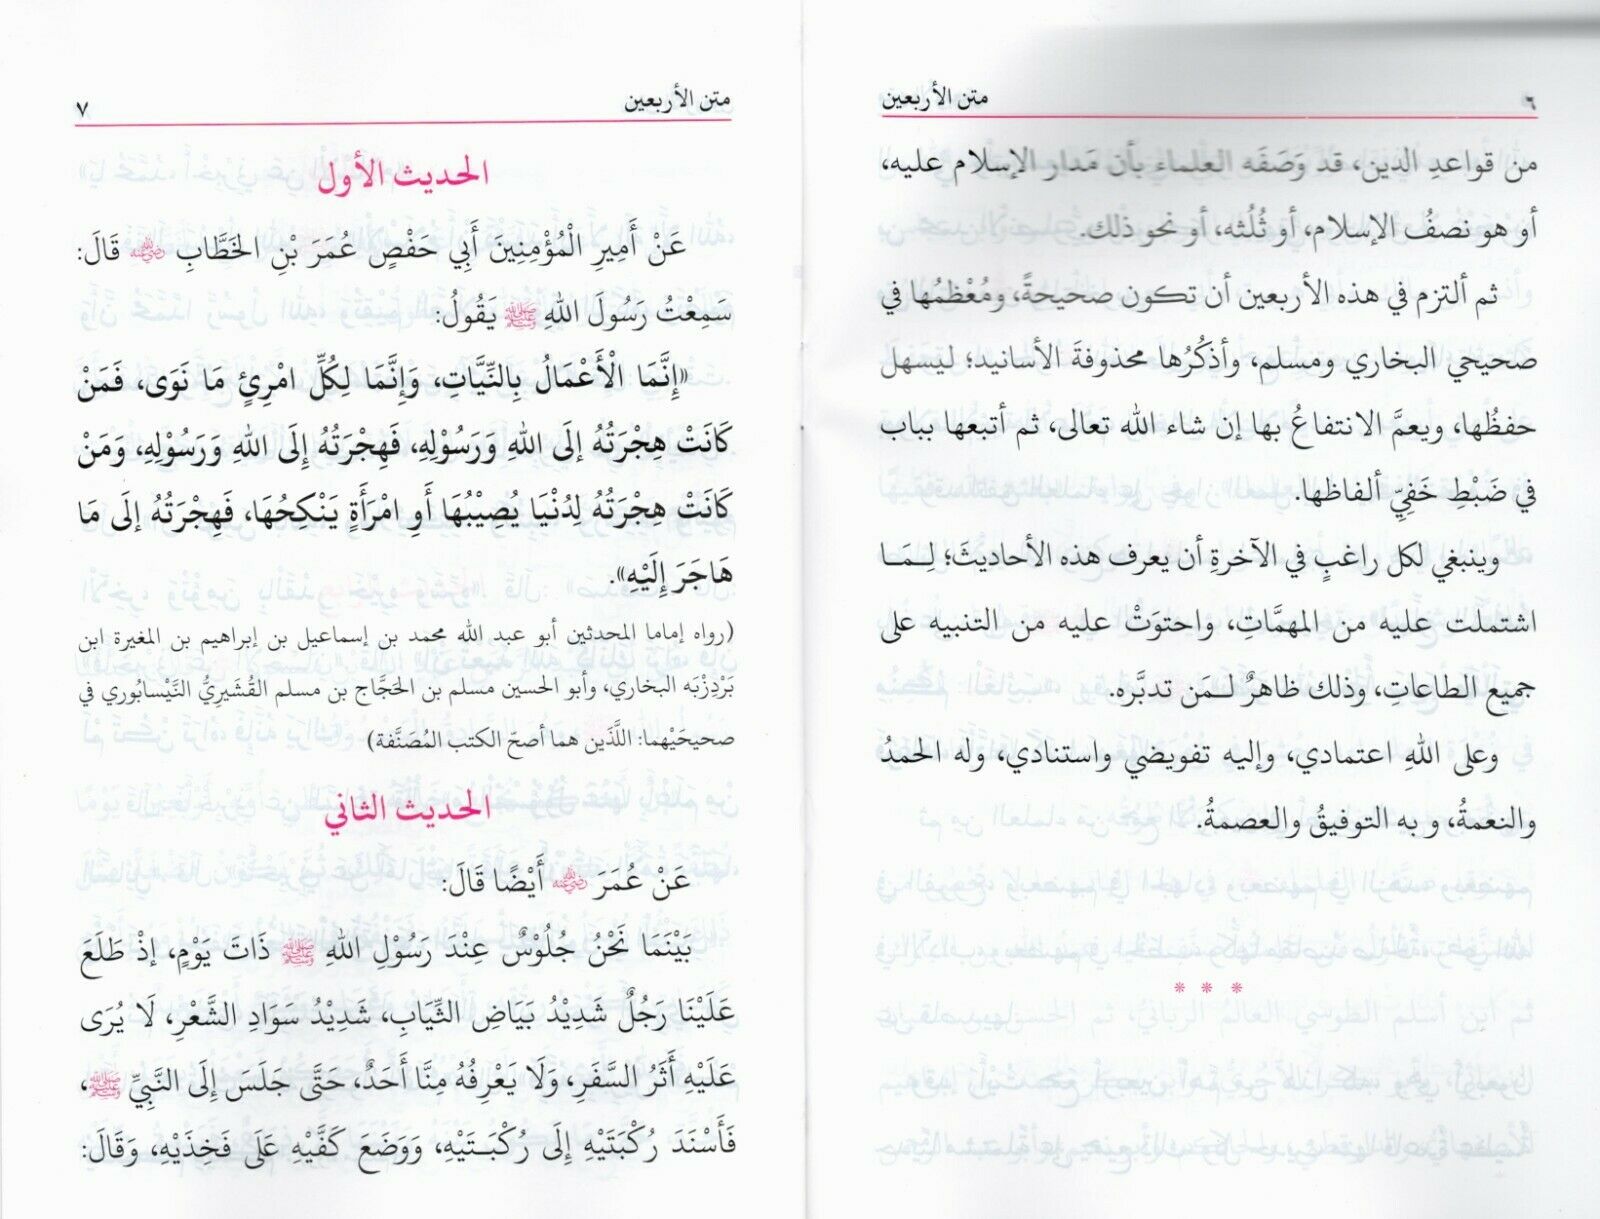 ٦ متن الأربعين
من قواعدِ الدين، قد وَصَفَه العلماء بأن مَدار الإسلام عليه،
أو هو نصفُ الإسلام، أو ثُلُثه، أو نحو ذلك.
ثم ألتزم في هذه الأربعين أن تكون صحيحةً، ومُعْظمُها في
صحيحي البخاري ومسلم، وأذكُرُها محذوفةَ الأسانيد؛ ليَسهل
حفظُها، ويعمَّ الانتفاعُ بها إن شاء الله تعالى، ثم أتبعها بباب
في ضَبْطِ خَفِيِّ ألفاظها.
وينبغي لكل راغبٍ في الآخرةِ أن يعرف هذه الأحاديثَ؛ لِـمَـا
اشتملت عليه من المهمَّاتِ، واحتوَتْ عليه من التنبيه على
جميع الطاعاتِ، وذلك ظاهرٌ لـمَن تدبَّره.
وعلى اللهِ اعتمادي، وإليه تفويضي واستنادي، وله الحمدُ
والنعمةُ، و به التوفيقُ والعصمةُ.
* * *
متن الأربعين ٧
الحديث الأول
عَنْ أَمِيرِ الْمُؤْمِنِينَ أَبِي حَفْصٍ عُمَرَ بْنِ الخَطَّابِ رضي الله عنه قَالَ:
سَمِعْتُ رَسُولَ اللهِ ﷺ يَقُولُ:
«إِنَّمَا الْأَعْمَالُ بِالنِّيَّاتِ، وَإِنَّمَا لِكُلِّ امْرِئٍ مَا نَوَى، فَمَنْ
كَانَتْ هِجْرَتُهُ إلَى اللهِ وَرَسُوْلِهِ، فَهِجْرَتُهُ إِلَى اللهِ وَرَسُوْلِهِ، وَمَنْ
كَانَتْ هِجْرَتُهُ لِدُنْيَا يُصِيْبُهَا أَوِ امْرَأَةٍ يَنْكِحُهَا، فَهِجْرَتُهُ إلَى مَا
هَاجَرَ إِلَيْهِ».
(رواه إماما المحدثين أبو عبد الله محمد بن إسماعيل بن إبراهيم بن المغيرة ابن
بَرْدِزْبَه البخاري، وأبو الحسين مسلم بن الحَجَّاج بن مسلم القُشَيريُّ النَّيْسابُوري في
صحيحَيْهما: اللَّذَين هما أصحّ الكتب المُصَنَّفة)
الحديث الثاني
عَنْ عُمَرَ رضي الله عنه أَيْضًا قَالَ:
بَيْنَمَا نَحْنُ جُلُوْسٌ عِنْدَ رَسُوْلِ اللهِ ﷺ ذَاتَ يَوْمٍ، إذْ طَلَعَ
عَلَيْنَا رَجُلٌ شَدِيْدُ بَيَاضِ الثِّيَابِ، شَدِيْدُ سَوَادِ الشَّعْرِ، لَا يُرَى
عَلَيْهِ أَثَرُ السَّفَرِ، وَلَا يَعْرِفُهُ مِنَّا أَحَدٌ، حَتَّى جَلَسَ إِلَى النَّبِيِّ ﷺ،
فَأَسْنَدَ رُكْبَتَيْهِ إِلَى رُكْبَـتَيْهِ، وَوَضَعَ كَفَّيْهِ عَلَى فَخِذَيْهِ، وَقَالَ: